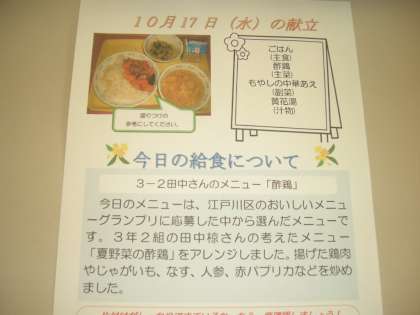 10月17日（水）の献立
ごはん
(主食)
酢鶏
(主菜)
もやしの中華あえ
(副菜)
黄花湯
(汁物)
盛りつけの
参考にしてください。
今日の給食について
3－2田中さんのメニュー「酢鶏」
今日のメニューは、江戸川区のおいしいメニュ
ーグランプリに応募した中から選んだメニューで
す。3年2組の田中椋さんの考えたメニュー
「夏野菜の酢鶏」をアレンジしました。揚げた鶏肉
やじゃがいも、なす、人参、赤パプリカなどを炒め
ました。